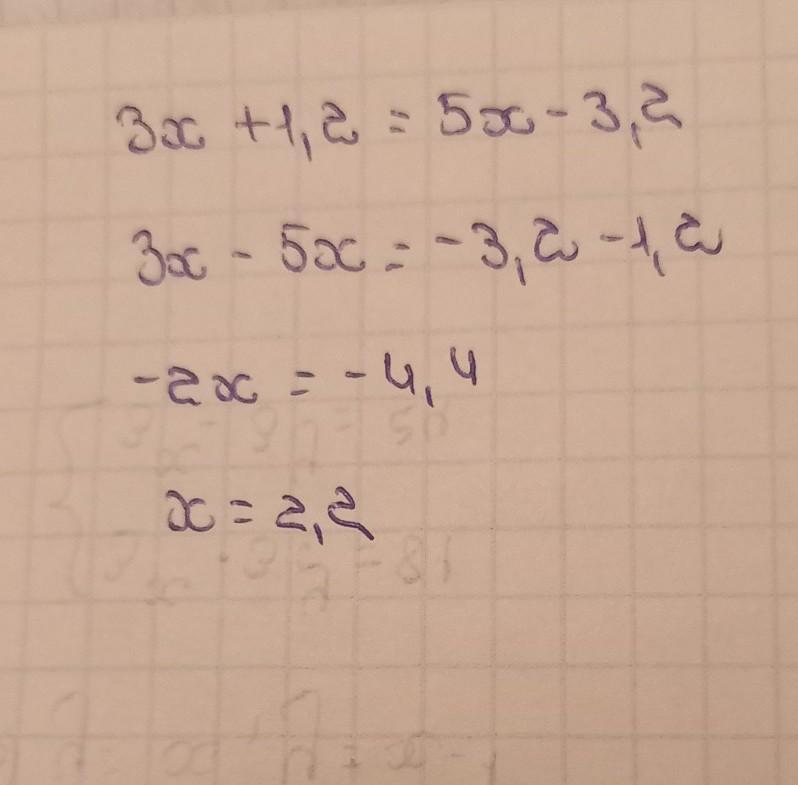 3x + 1,2 = 5x - 3,2
3x - 5x = -3,2 - 1,2
-2x = -4,4
x = 2,2